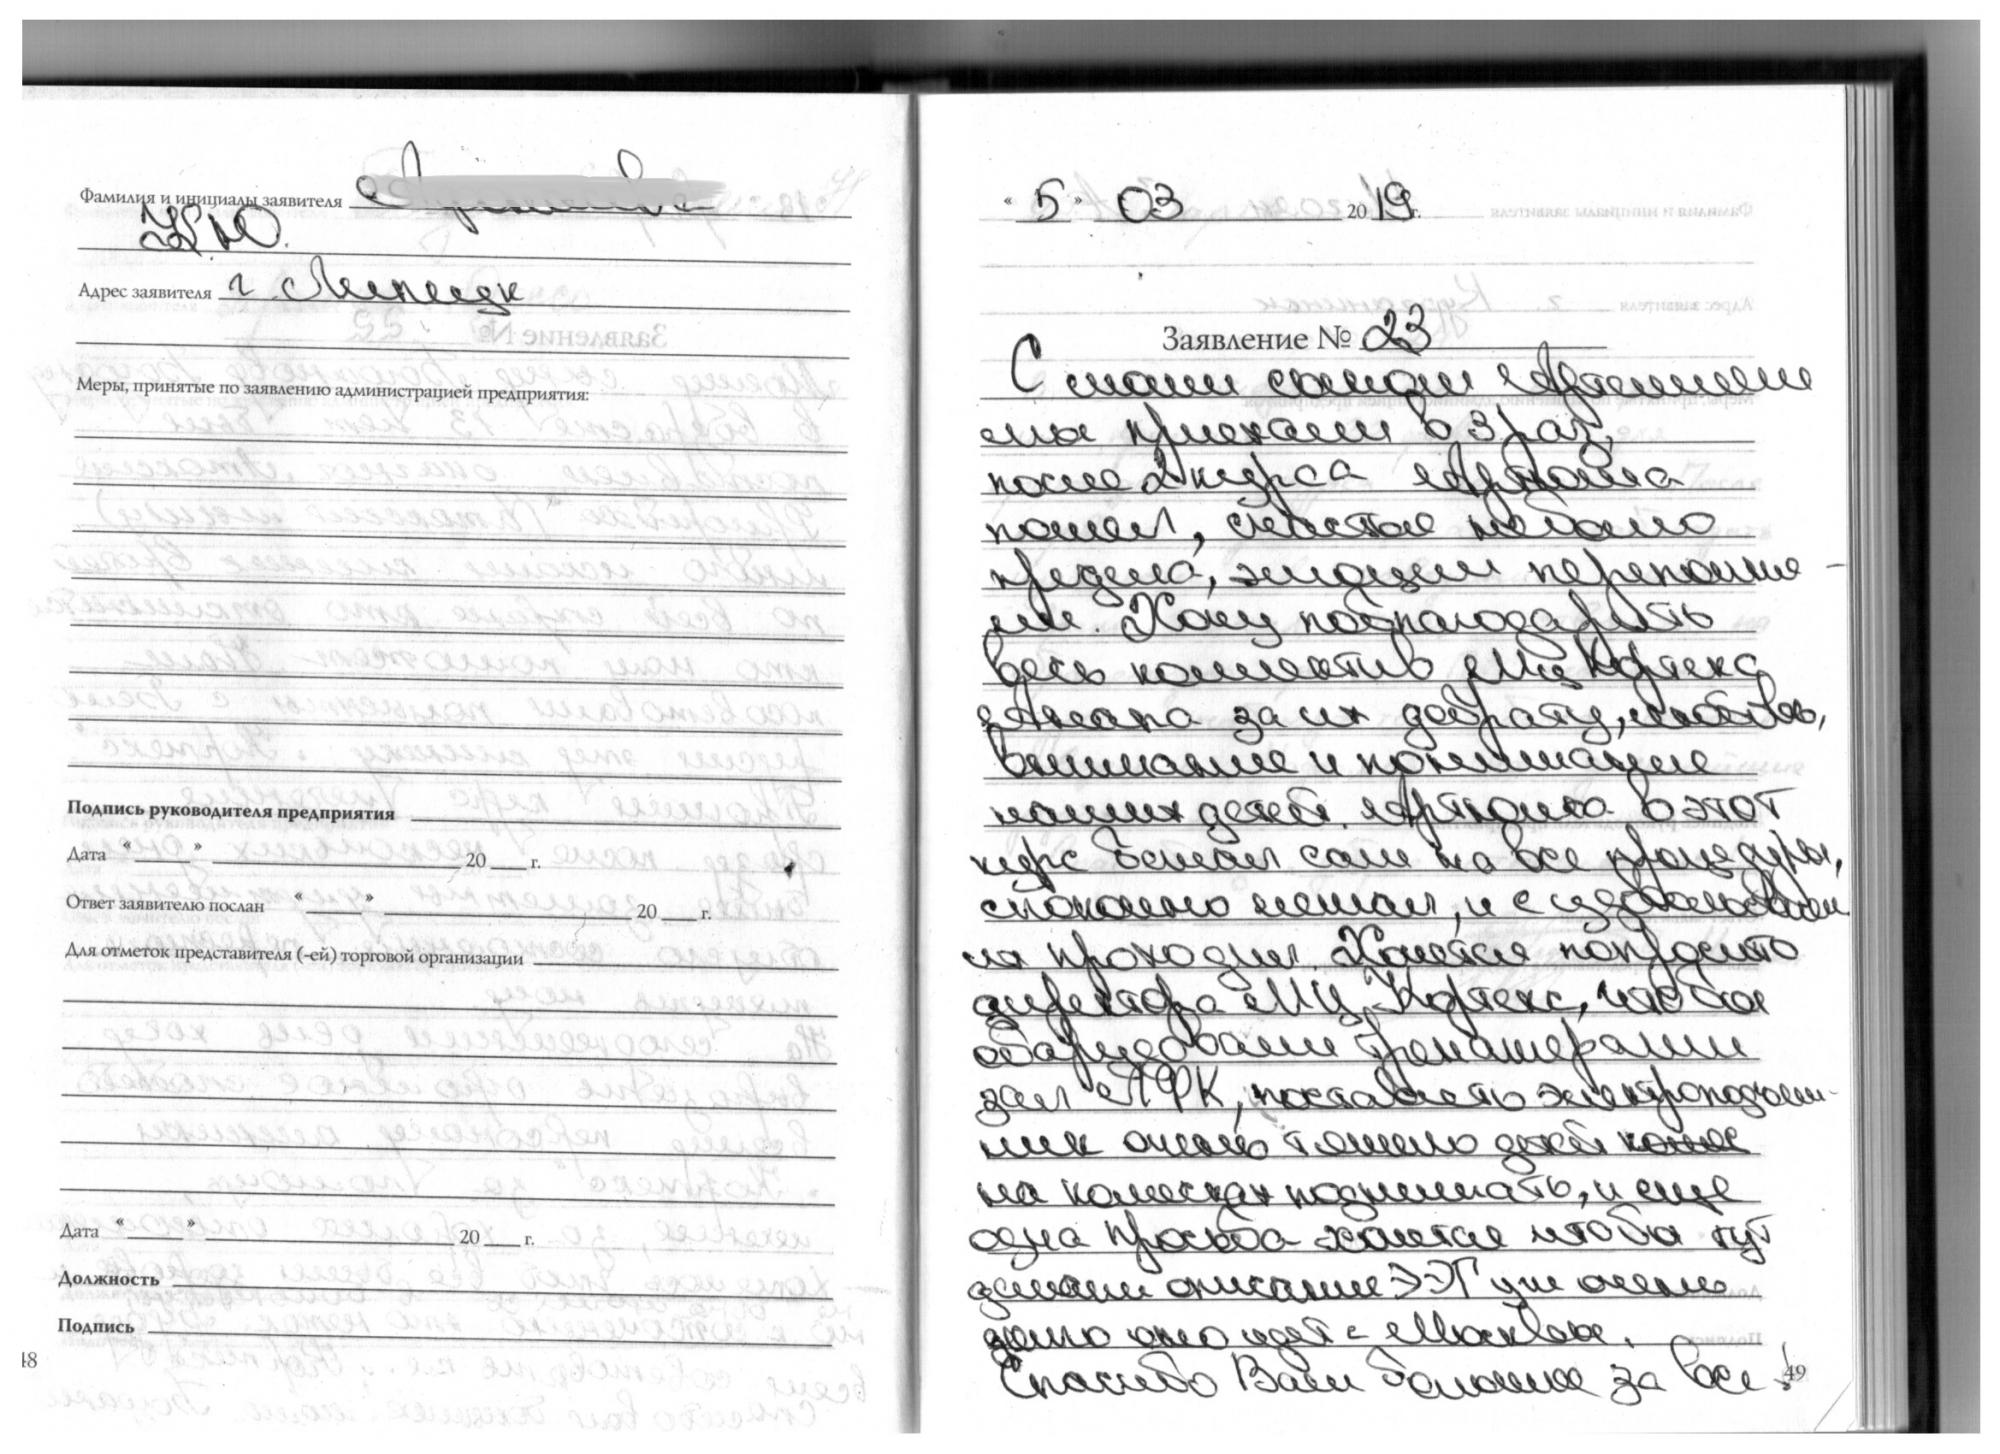 Фамилия и инициалы заявителя
Ю.
Адрес заявителя г. Липецк
Меры, принятые по заявлению администрацией предприятия:
Подпись руководителя предприятия
Дата " " 20 г.
Ответ заявителю послан " " 20 г.
Для отметок представителя (-ей) торговой организации
Дата " " 20 г.
Должность
Подпись
48
" 5 " 03 2019г.
Заявление № 23
С моим сыном Артемием
мы приехали в 3 раз,
после 2 курса Артёмка
пошел, счастье небыло
предела, эмоции переполня-
ли. Хочу поблагодарить
весь коллектив МЦ Кортекс
за их доброту, любовь,
внимание и понимание
наших детей. Артёмка в этот
курс бегал сам на все процедуры,
спокойно лежал, и с удовольствием
их проходил. Хочется попросить
директора МЦ Кортекс, чтобы
оборудовали тренажерами
зал ЛФК, поставить электроподъем-
ник очень тяжело детей
на колясках поднимать, и еще
одна просьба хочется чтобы тут
делали описание ЭЭГ уж очень
долго оно идет с Москвы.
Спасибо Вам большое за все!
49